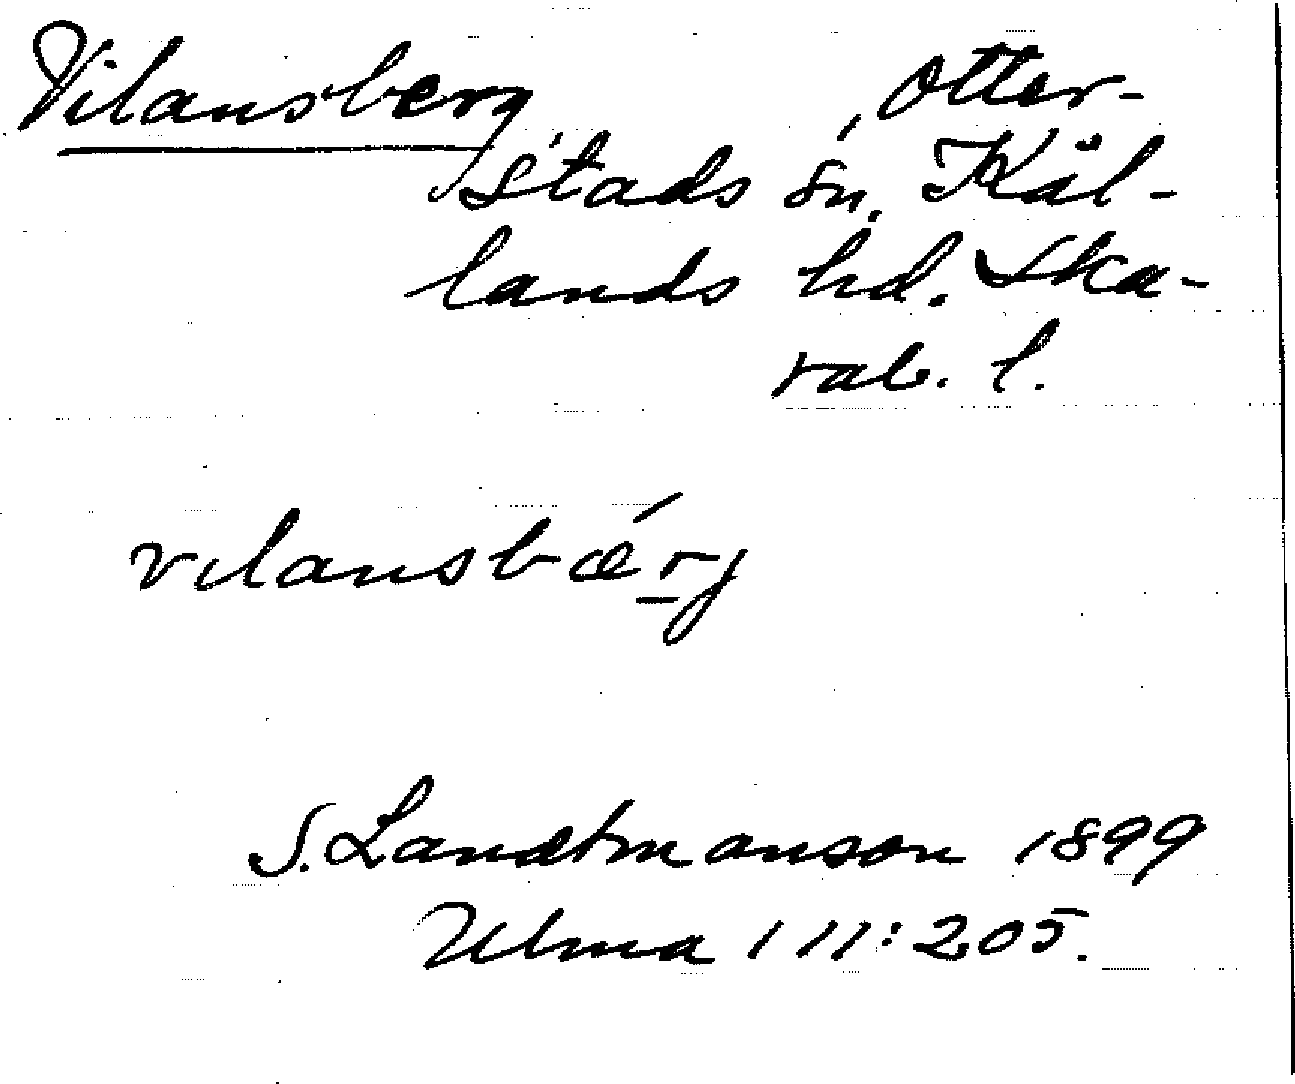 Vilansberg Otter-
stads sn, Kål-
lands hd. Ska-
rab. l.
vilansbæ´rj
S. Landtmanson 1899
Ulma 111:205.